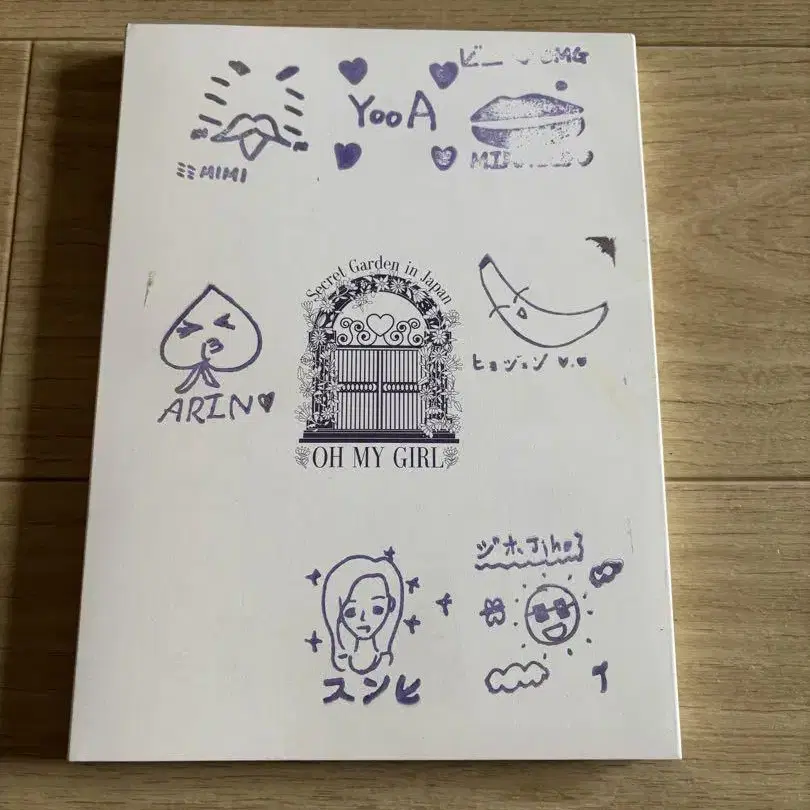 ビニ ♡ OMG
YooA
ミミ MIMI
Secret Garden in Japan
ヒョジョン ♥.♥
ARIN♥
OH MY GIRL
ジホ Jiho
スンヒ